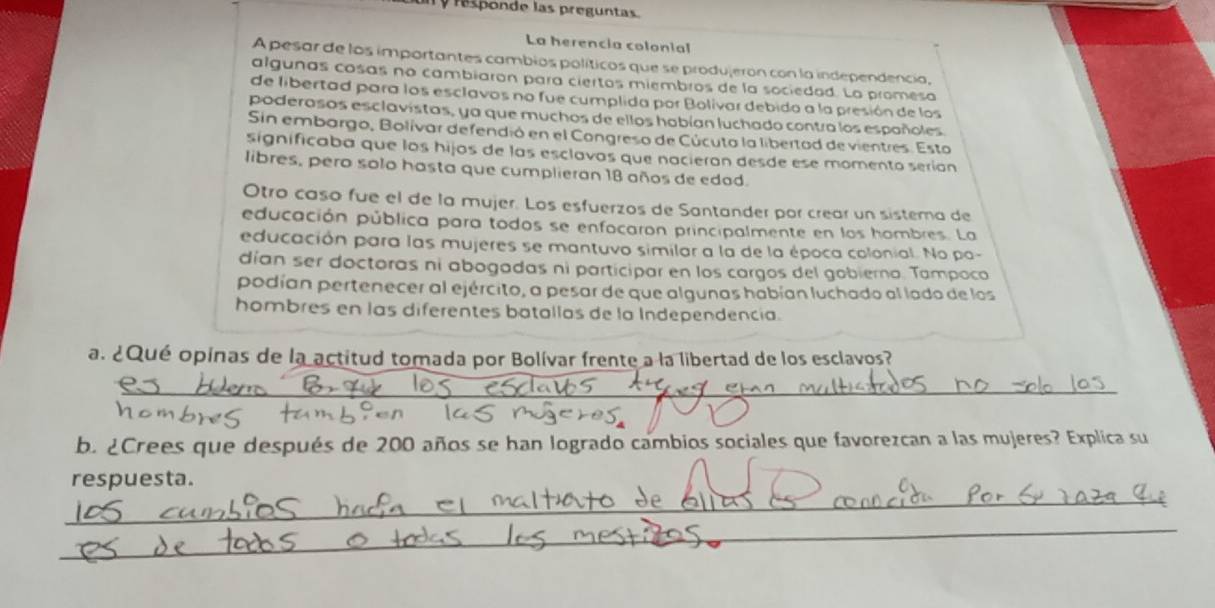 y responde las preguntas.
La herencia colonial
A pesar de los importantes cambios políticos que se produjeron con la independencia,
algunas cosas no cambiaron para ciertos miembros de la sociedad. La promesa
de libertad para los esclavos no fue cumplida por Bolívar debido a la presión de los
poderosos esclavistas, ya que muchos de ellos habían luchado contra los españoles.
Sin embargo, Bolívar defendió en el Congreso de Cúcuta la libertad de vientres. Esto
significaba que los hijos de las esclavas que nacieran desde ese momento serían
libres, pero solo hasta que cumplieran 18 años de edad.
Otro caso fue el de la mujer. Los esfuerzos de Santander por crear un sistema de
educación pública para todos se enfocaron principalmente en los hombres. La
educación para las mujeres se mantuvo similar a la de la época colonial. No po-
dían ser doctoras ni abogadas ni participar en los cargos del gobierno. Tampoco
podían pertenecer al ejército, a pesar de que algunas habían luchado al lado de los
hombres en las diferentes batallas de la Independencia.
a. ¿Qué opinas de la actitud tomada por Bolívar frente a la libertad de los esclavos?
es los esclavos eran no solo los
hombres tambien las mugeres.
b. ¿Crees que después de 200 años se han logrado cambios sociales que favorezcan a las mujeres? Explica su
respuesta.
los cambios hacia el maltrato de ellas es conocida Por su raza que
es de todos o todas los mestizos.